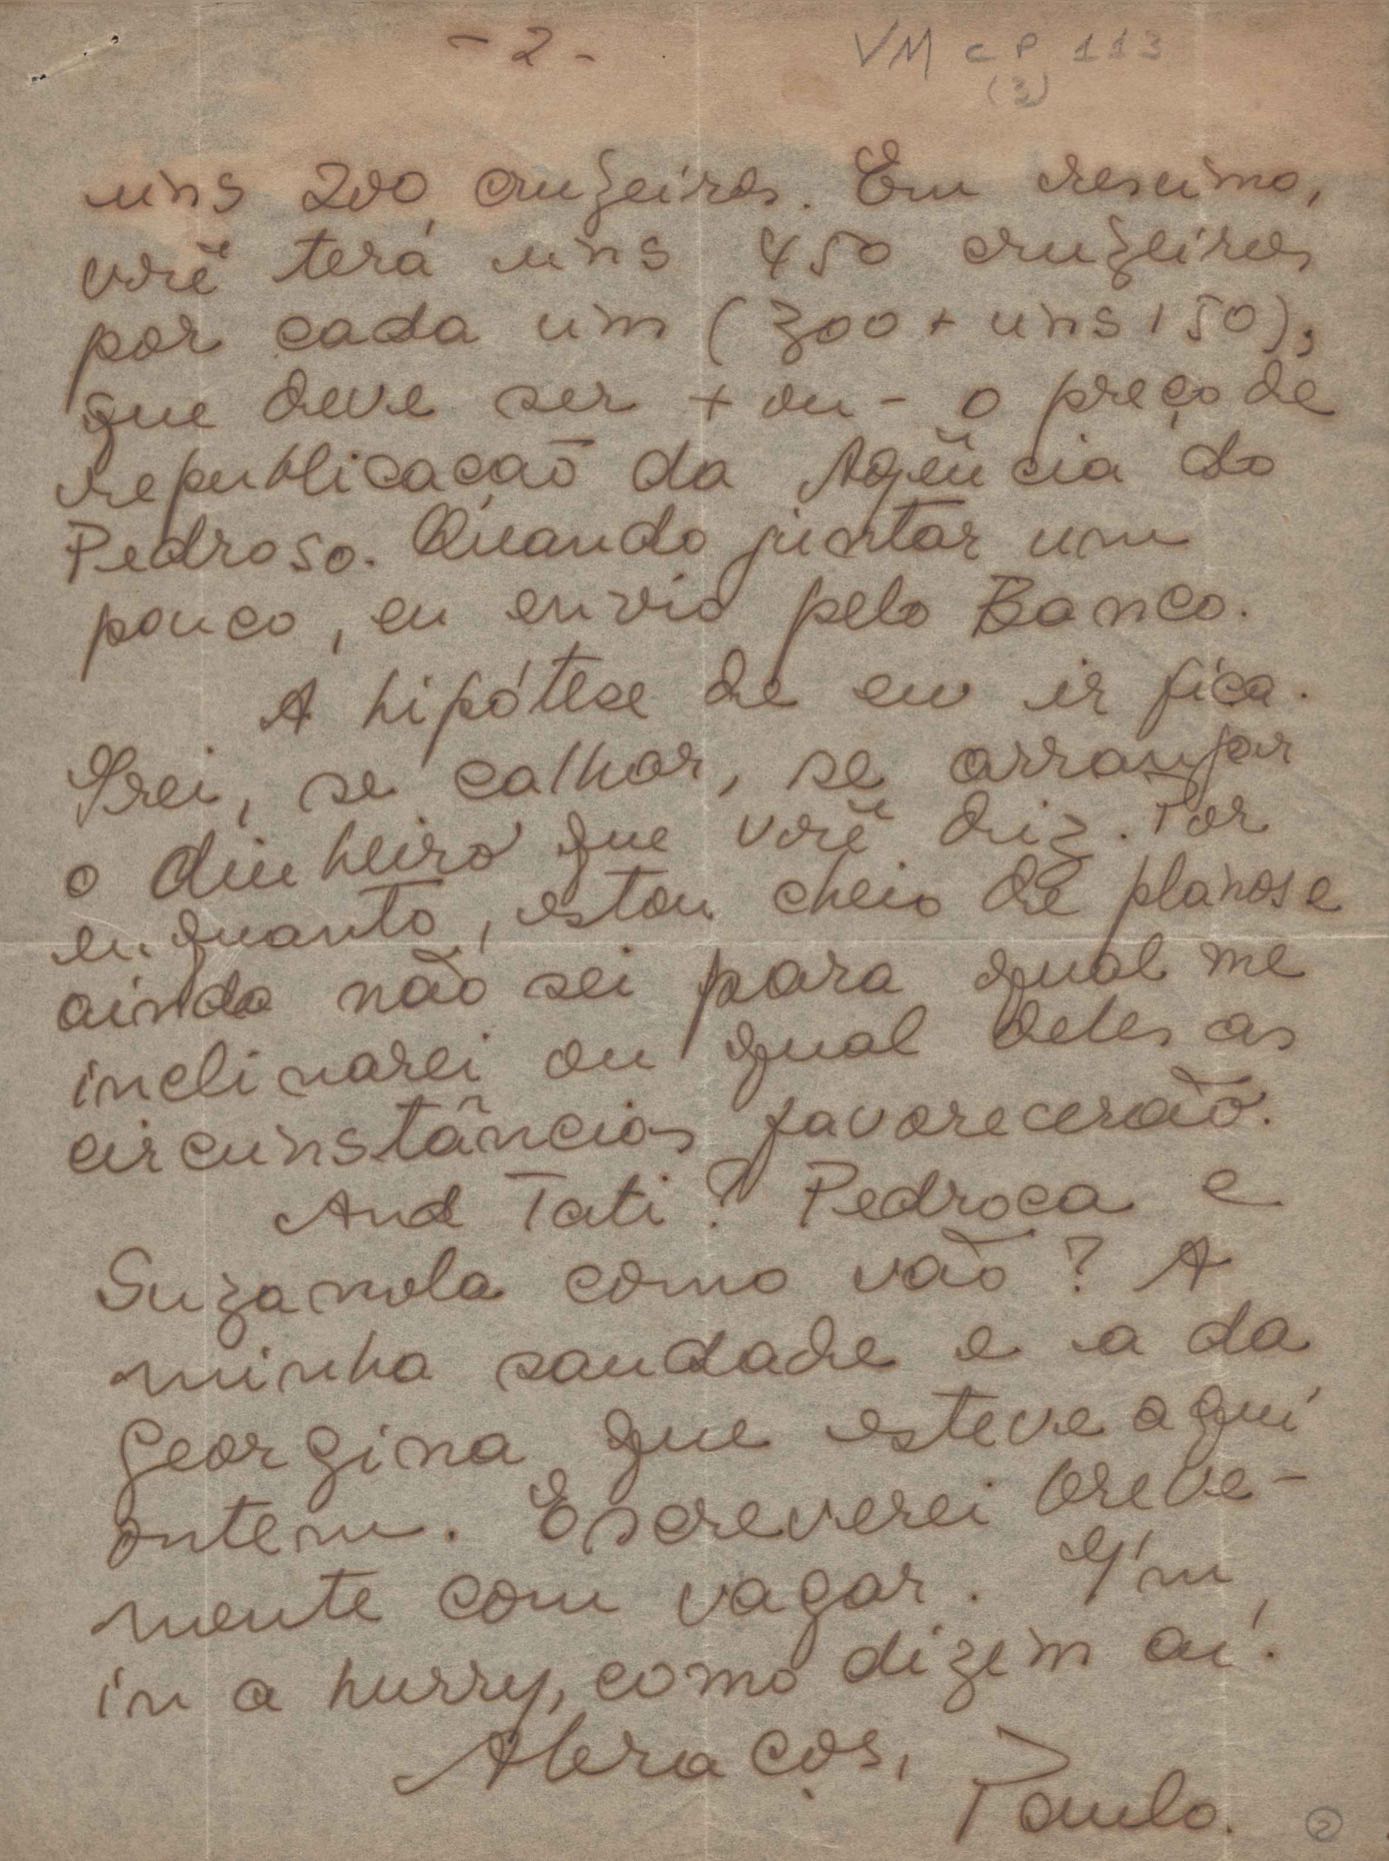 - 2 -
VM CP 113
(3)
uns 200 cruzeiros. Em resumo,
você terá uns 450 cruzeiros
por cada um (300 + uns 150),
que deve ser + ou - o preço de
republicação da Agência do
Pedroso. Quando juntar um
pouco, eu envio pelo Banco.
A hipótese de eu ir fica.
Irei, se calhar, se arranjar
o dinheiro que você diz. Por
enquanto, estou cheio de planos e
ainda não sei para qual me
inclinarei ou qual deles as
circunstâncias favorecerão.
And Tati? Pedroca e
Suzanola como vão? A
minha saudade e a da
Georgina que esteve aqui
ontem. Escreverei breve-
mente com vagar. I'm
in a hurry, como dizem aí.
Abraços,
Paulo.
2